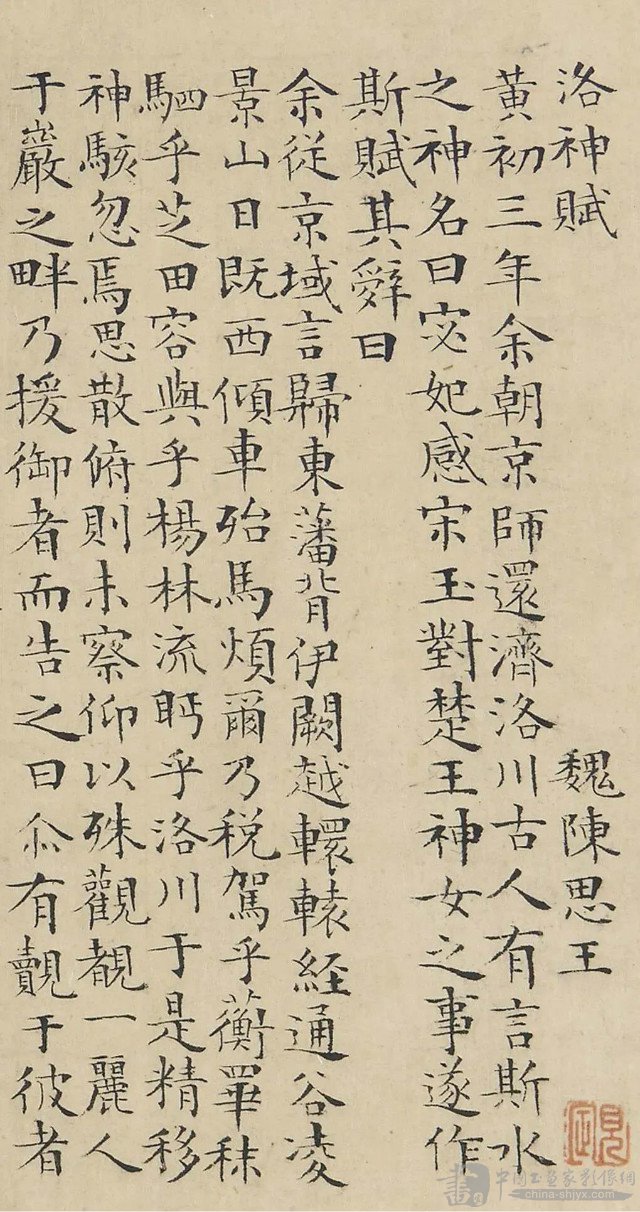 洛神賦 魏陳思王
黃初三年余朝京師還濟洛川古人有言斯水
之神名曰宓妃感宋玉對楚王神女之事遂作
斯賦其辭曰
余從京域言歸東藩背伊闕越轘轅経通谷凌
景山日既西傾車殆馬煩爾乃稅駕乎蘅皋秣
駟乎芝田容與乎楊林流眄乎洛川于是精移
神駭忽焉思散俯則未察仰以殊觀覩一麗人
于巖之畔乃援御者而告之曰尒有覿于彼者
中國書畫家影像網
china-shjyx.com